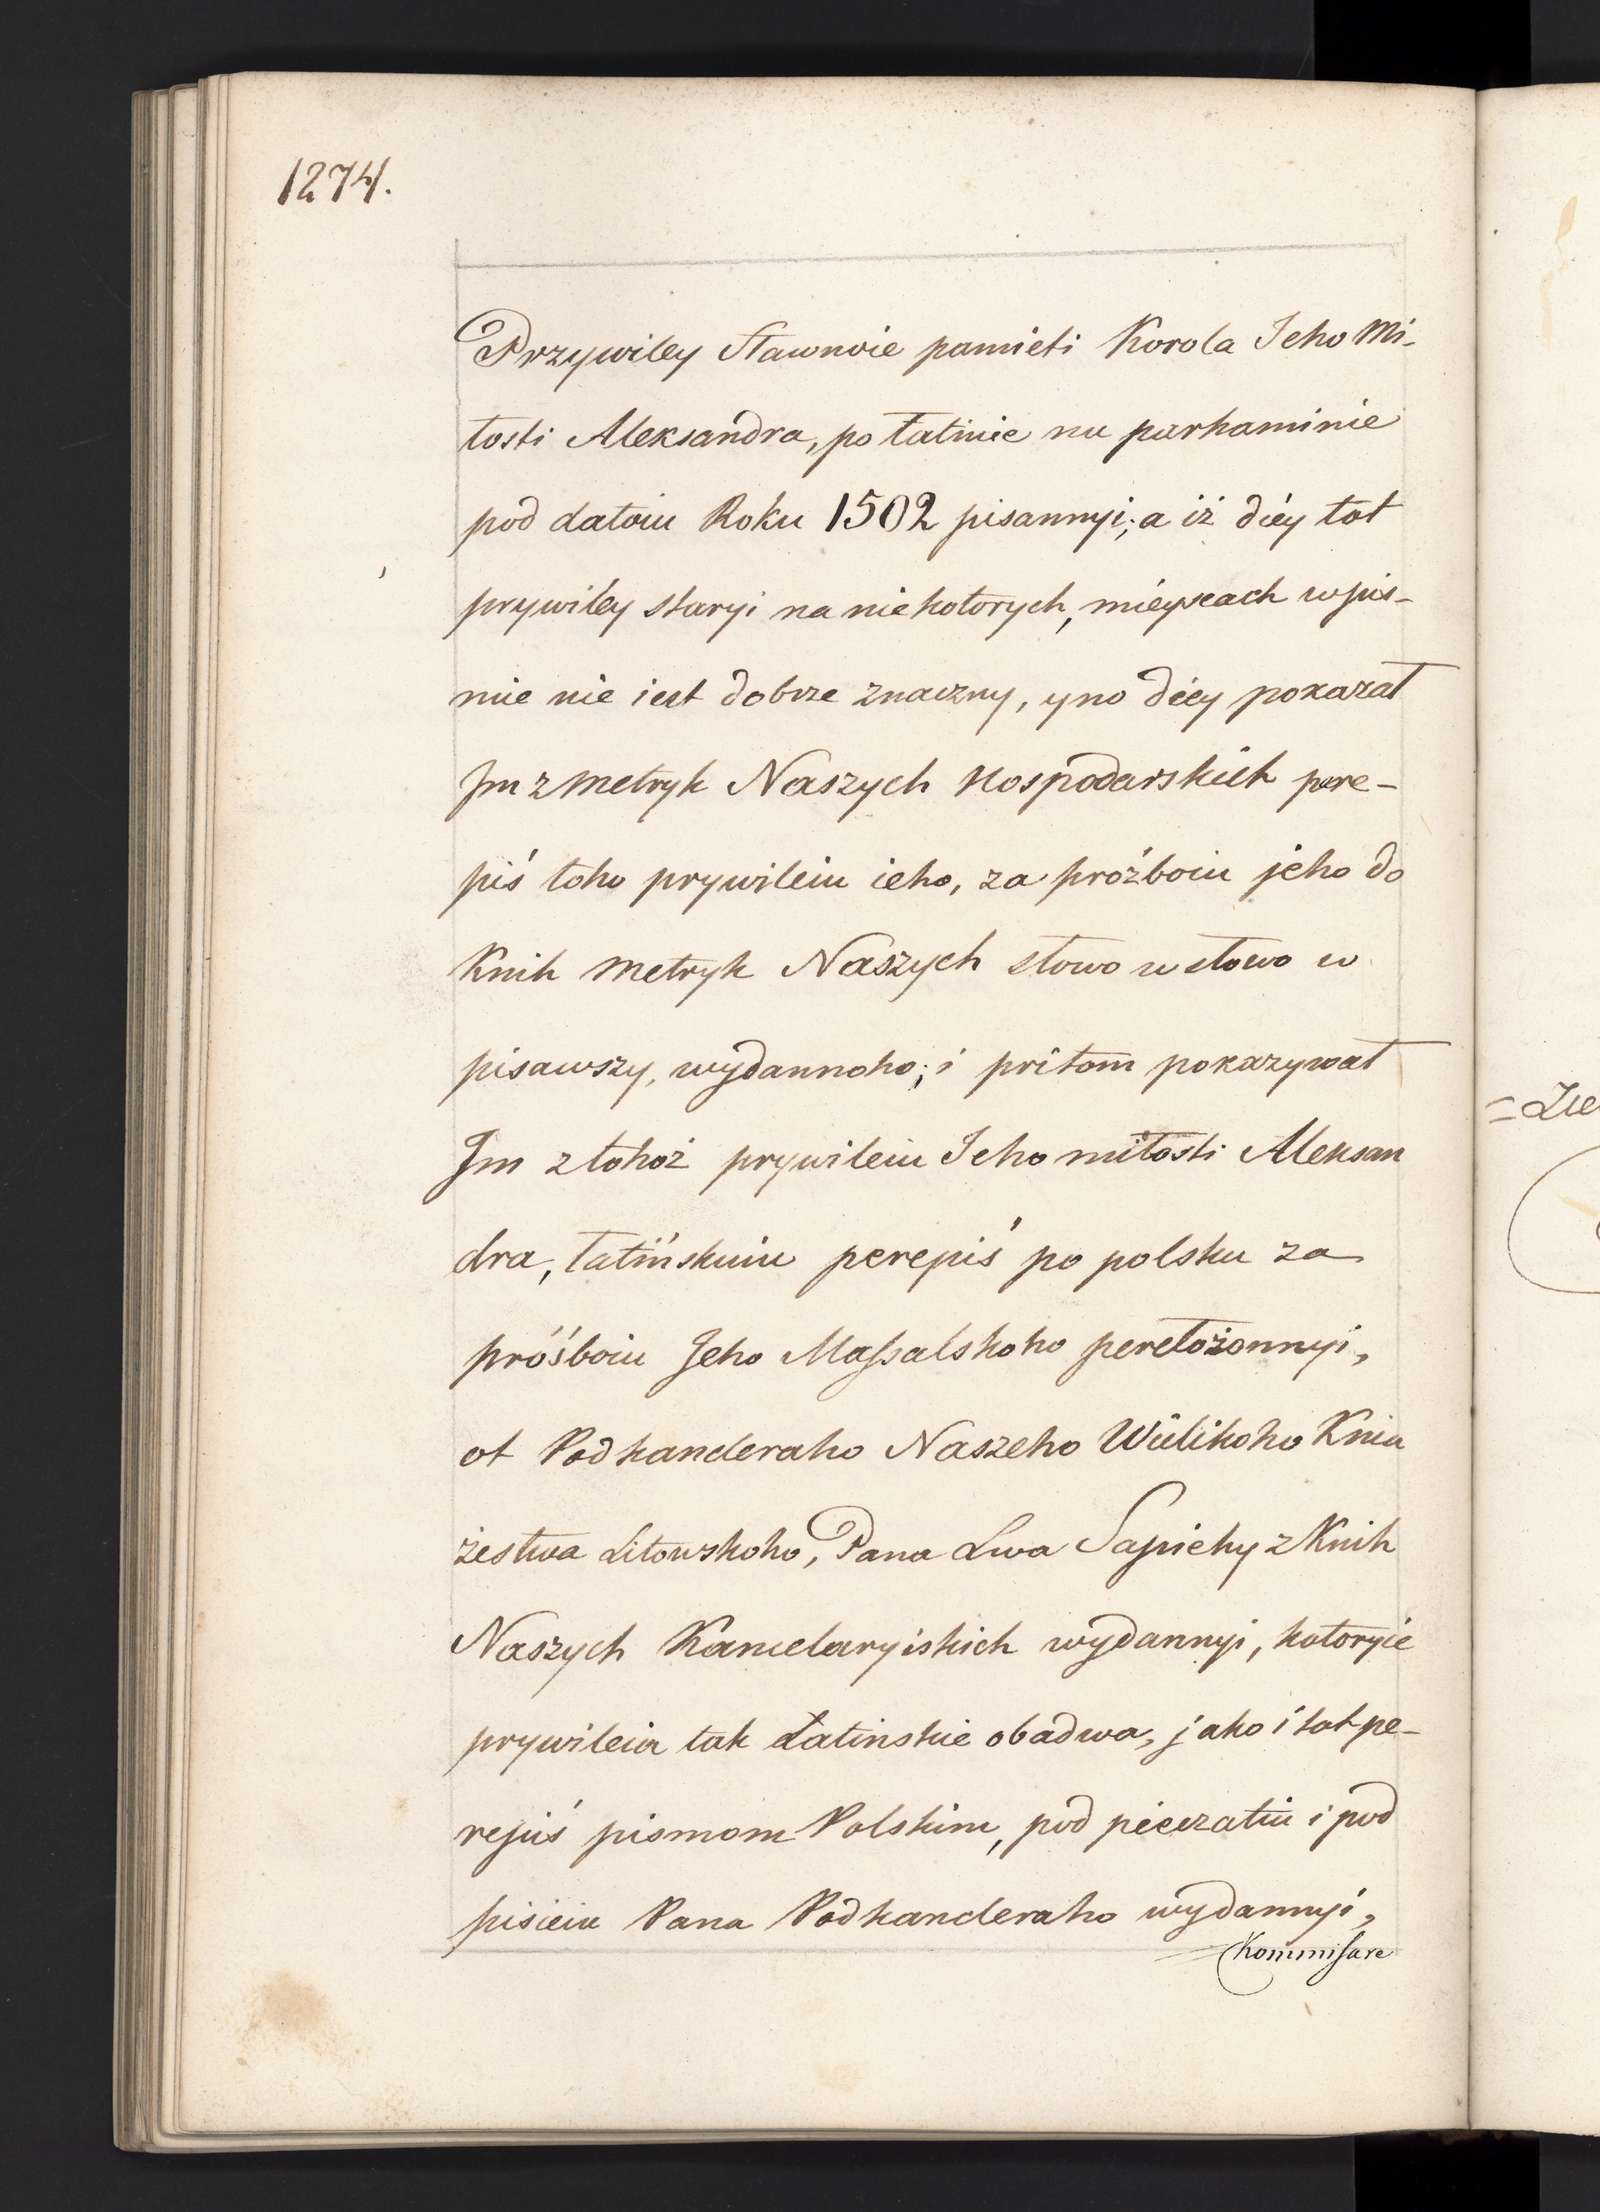 1274.
Przywiley sławnoie pamieti Korola Jeho Mi-
łosti Aleksandra, po łatinie na parhaminie
pod datoiu Roku 1502 pisannyi; a iż diéy tot
prywiléy staryi na niekotorych, miéyscach w pis-
mie nie iest dobrze znaczny, yno diéy pokazał
Jm z Metryk Naszych Hospodarskich pere-
piś toho prywileiu ieho, za proźboiu jeho do
Knih Metryk Naszych słowo w słowo w
pisawszy, wydannoho; i pritom pokazywał
Jm z tohoż prywileiu Jeho miłosti Aleksan
dra, łatińskuiu perepiś po polsku za
próśboiu Jeho Maſsalskoho perełożonnyi,
ot Podkancleraho Naszeho Wielikoho Knia
żestwa Litowskoho, Pana Lwa Sapiehy z Knih
Naszych Kancelaryiskich wydannyi, kotoryie
prywileia tak Łatinskie obadwa, jako i tot pe-
repiś pismom Polskim, pod pieczatiu i pod
pisieiu Pana Podkancleraho wydannyi,
= Kommiſsare